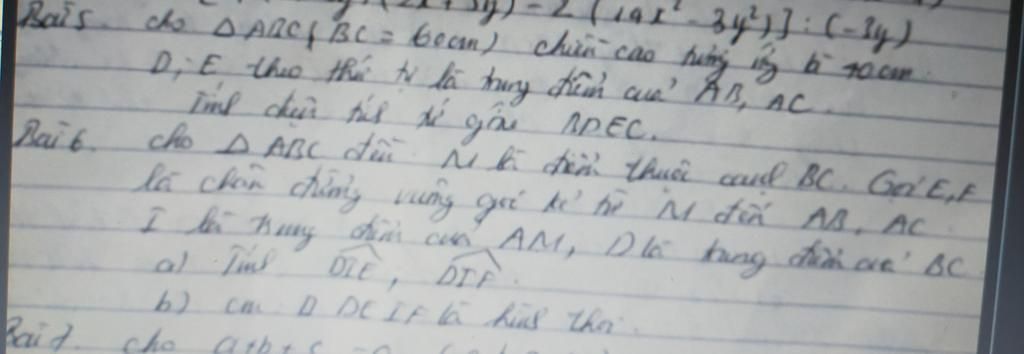 (2x + 3y) - 2 (19x² - 3y²)] : (-3y)
Bài 5. cho △ABC (BC = 60cm) chiều cao tương ứng là 40cm.
D, E theo thứ tự là trung điểm của AB, AC.
Tính diện tích tứ giác BDEC.
Bài 6. cho △ABC đều. M là điểm thuộc cạnh BC. Gọi E, F
là chân đường vuông góc kẻ từ M đến AB, AC.
I là trung điểm của AM, D là trung điểm của BC
a) Tính DIE, DIF.
b) cm. DEIF là hình thoi.
Bài 7. cho a+b+c = 0